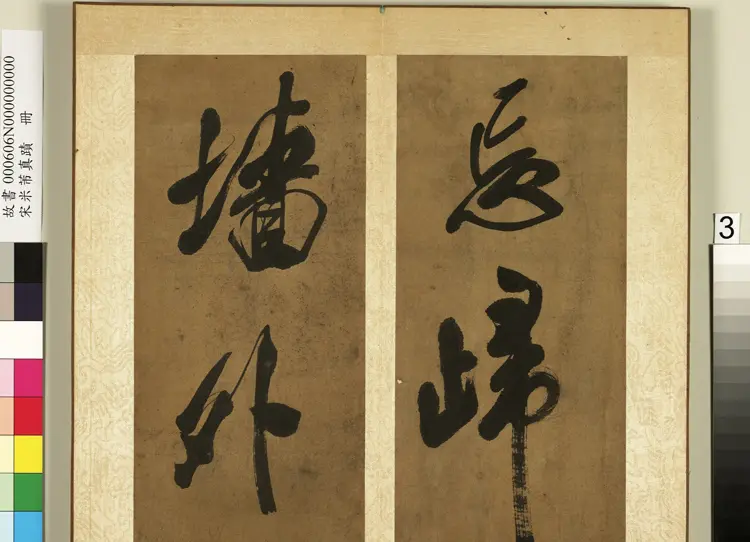 忘歸
墻外
故書 000606N000000000
宋米芾真蹟 冊
3